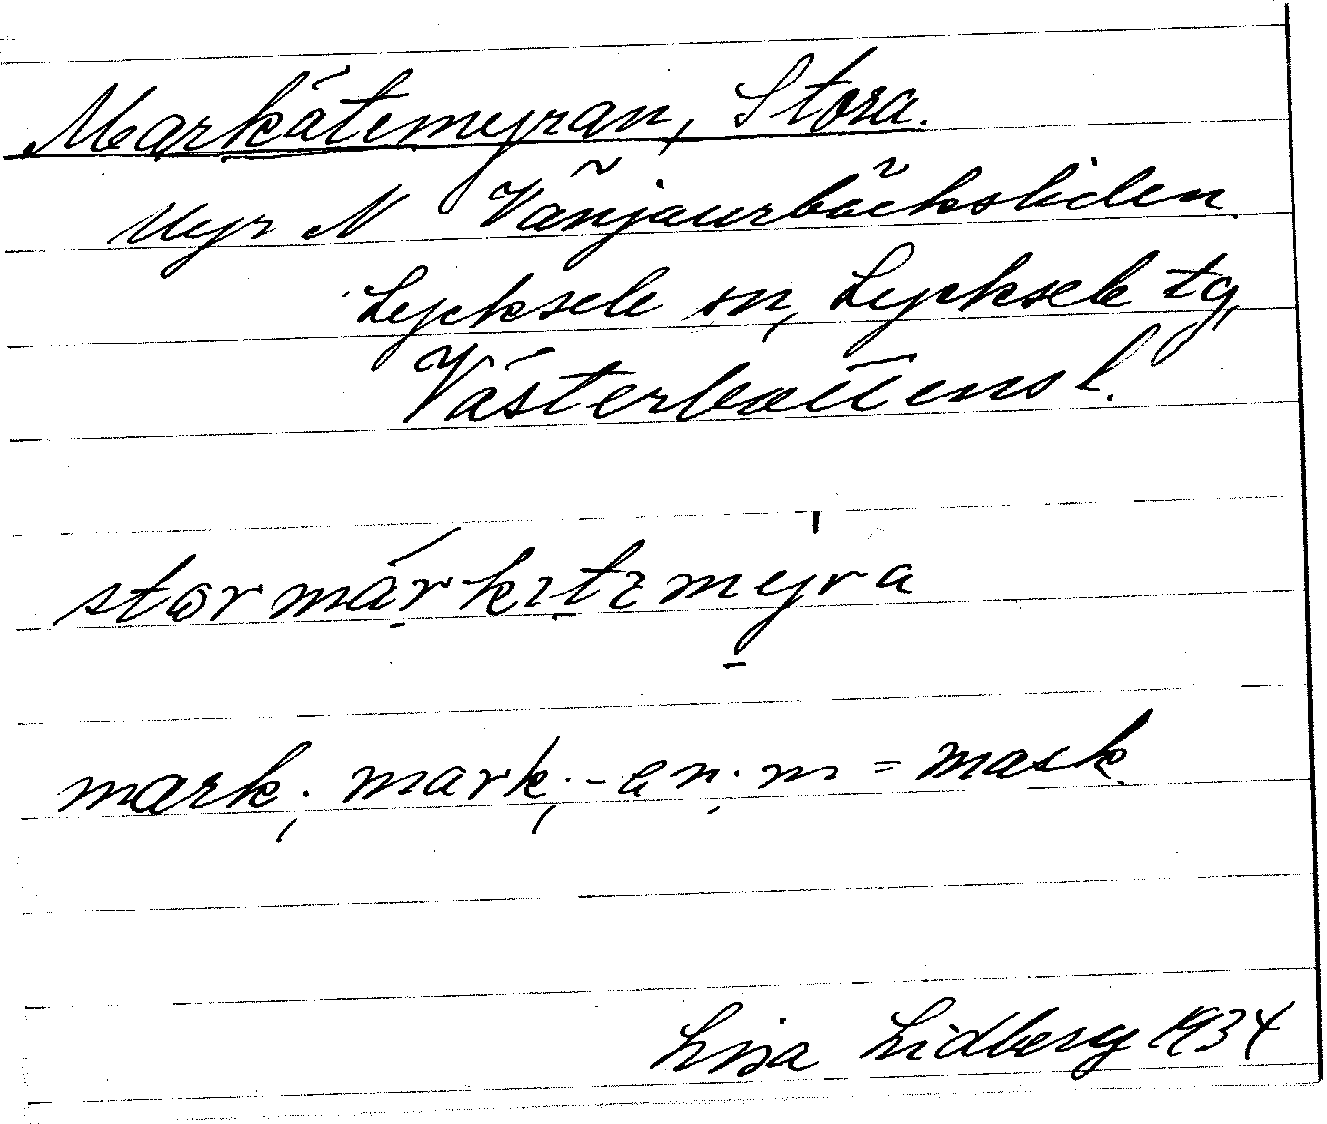 Markätemyran, Stora.
Myr N Vänjaurbäcksliden
Lycksele sn, Lycksele tg,
Västerbottens l.
stormarkıtımyra
mark; mark, -en. m = mask
Lisa Lidberg 1934